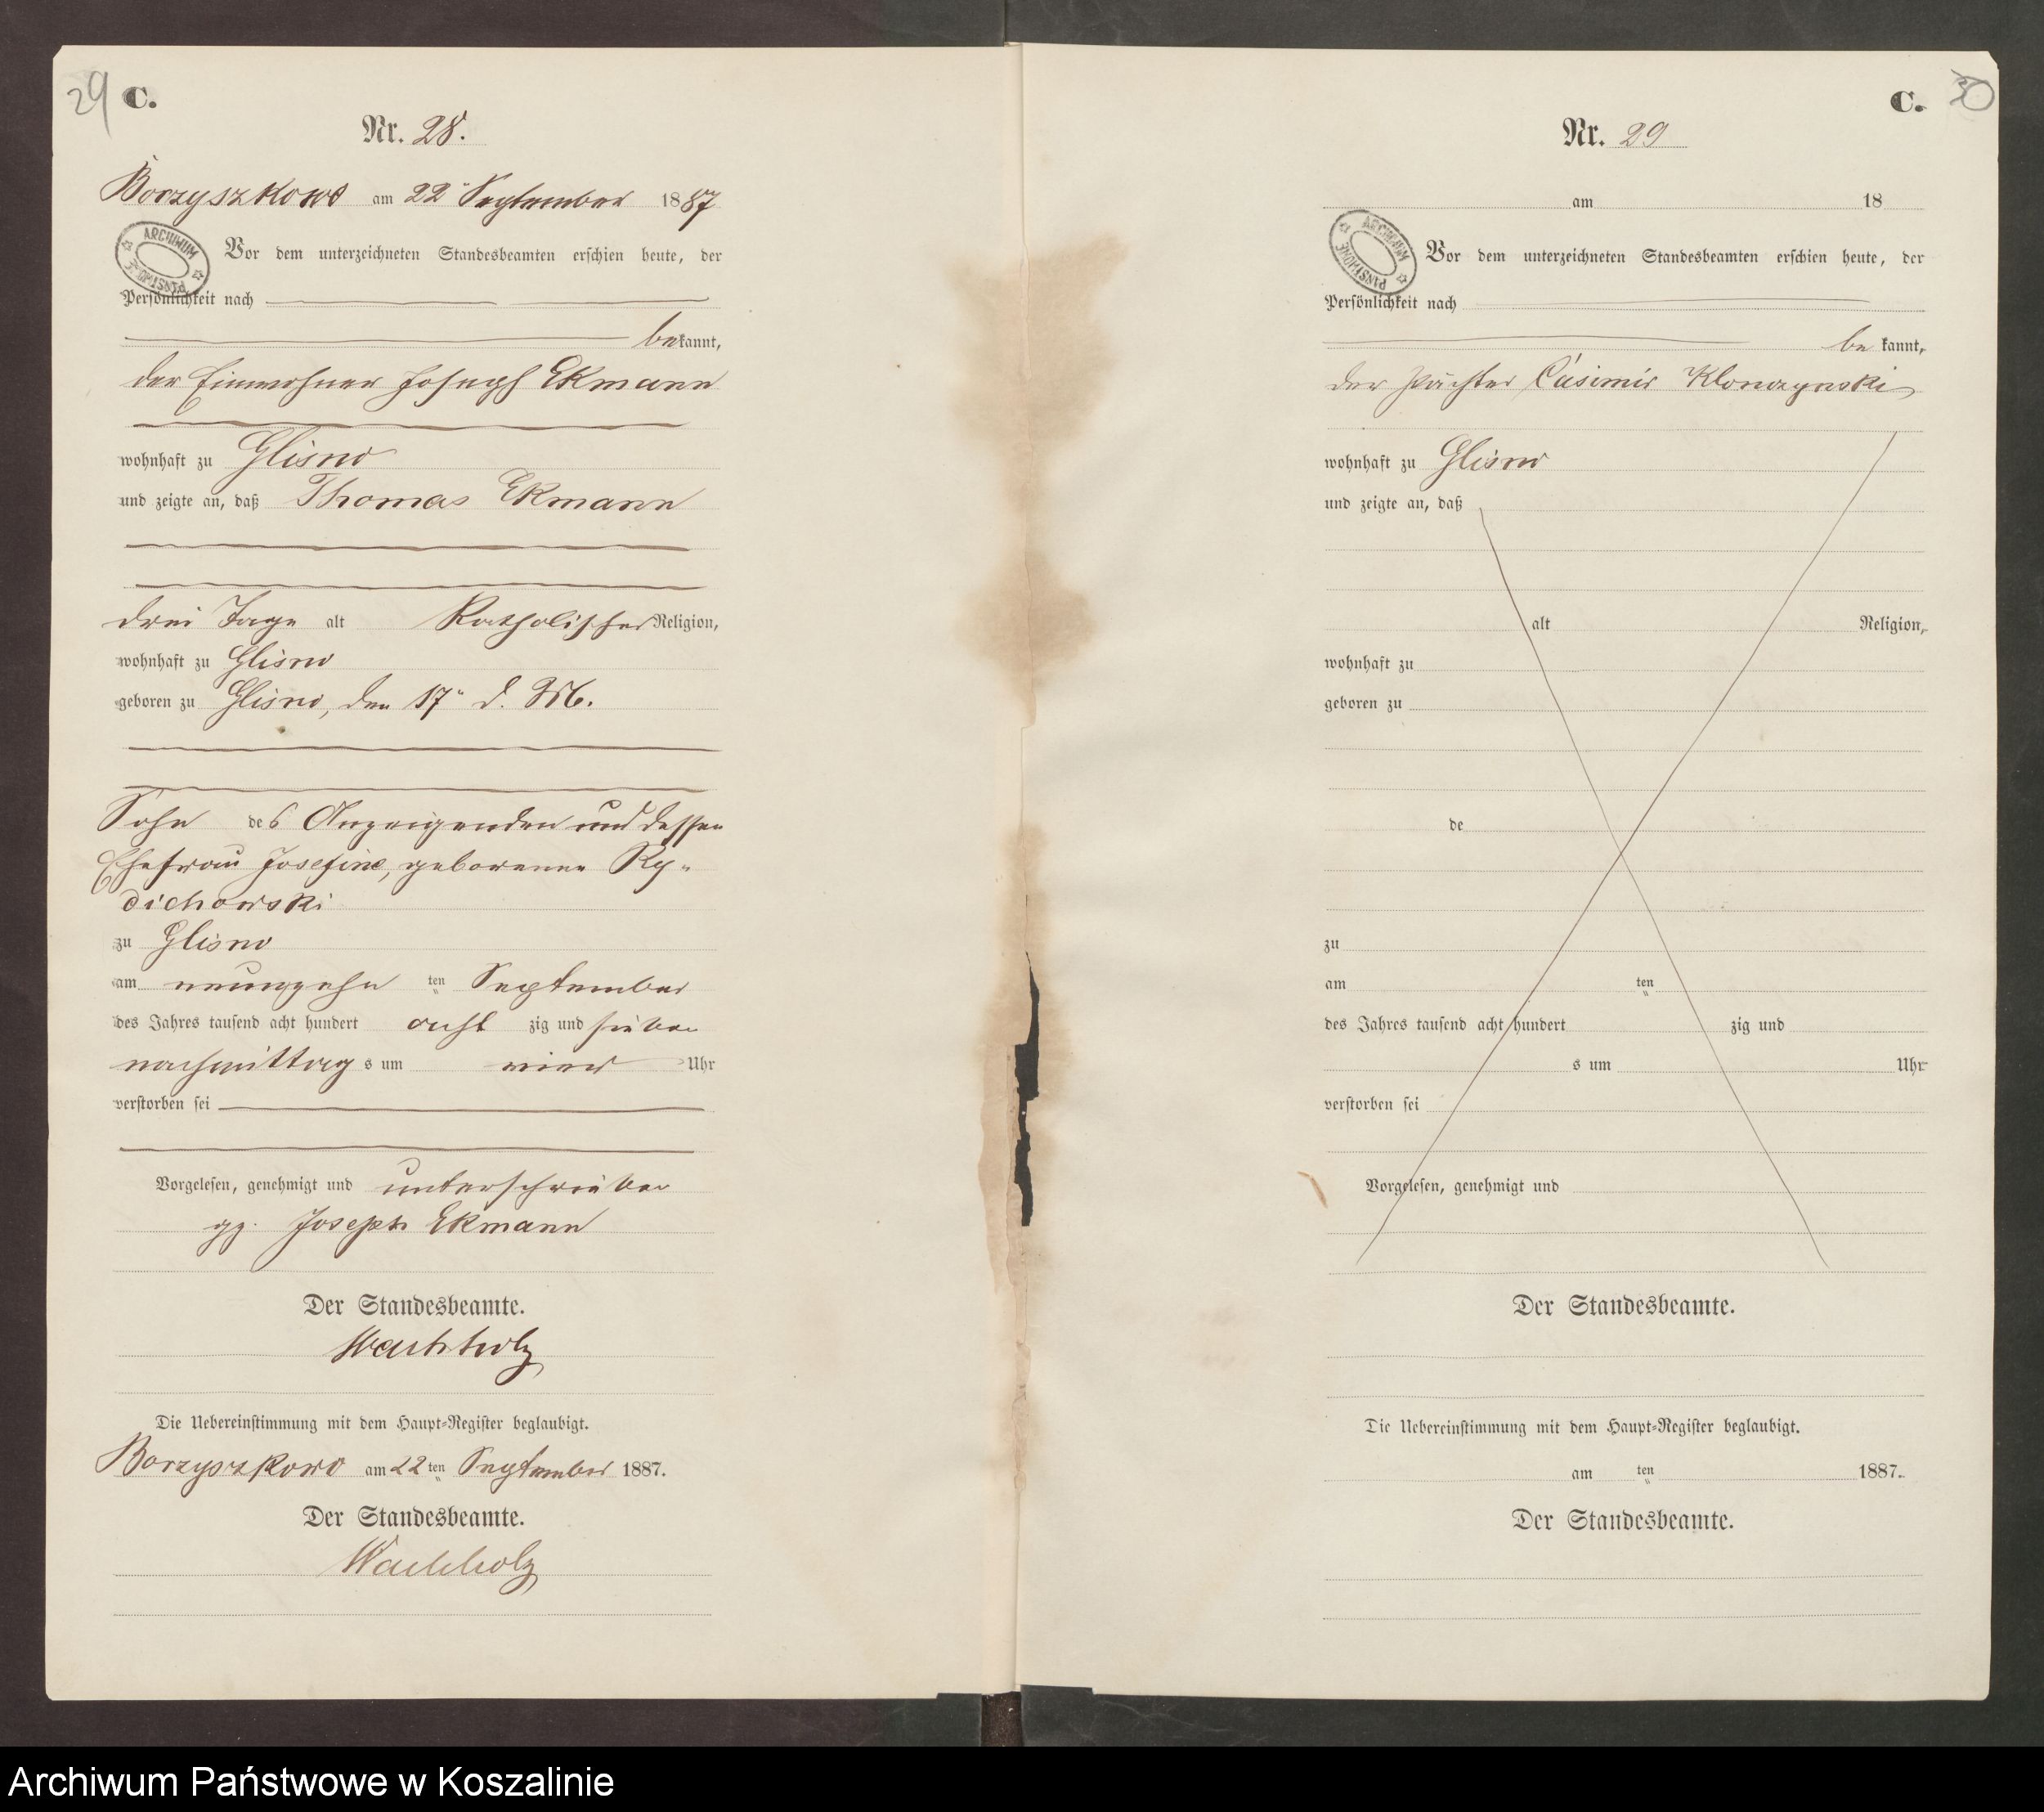 29 C.
Nr. 28.
Borzyszkowo am 22ⁿ September 1887
ARCHIWUM PAŃSTWOWE
Vor dem unterzeichneten Standesbeamten erschien heute, der
Persönlichkeit nach
bekannt,
der Einwohner Joseph Ekmann
wohnhaft zu Glisno
und zeigte an, daß Thomas Ekmann
drei Tage alt Katholischer Religion,
wohnhaft zu Glisno
geboren zu Glisno, den 17ⁿ d. Mts.
Sohn des Anzeigenden und dessen
Ehefrau Josefine, geborenen Ry-
dichowski
zu Glisno
am neunzehn ten September
des Jahres tausend acht hundert acht zig und sieben
nachmittag s um vier Uhr
verstorben sei
Vorgelesen, genehmigt und unterschrieben
gz. Joseph Ekmann
Der Standesbeamte.
Wachholz
Die Uebereinstimmung mit dem Haupt-Register beglaubigt.
Borzyszkowo am 22 ten September 1887.
Der Standesbeamte.
Wachholz
C. 30
Nr. 29
am 18
ARCHIWUM PAŃSTWOWE
Vor dem unterzeichneten Standesbeamten erschien heute, der
Persönlichkeit nach
be kannt,
der Pächter Casimir Klonczynski
wohnhaft zu Glisno
und zeigte an, daß
alt Religion,
wohnhaft zu
geboren zu
de
zu
am ten
des Jahres tausend acht hundert zig und
s um Uhr
verstorben sei
Vorgelesen, genehmigt und
Der Standesbeamte.
Die Uebereinstimmung mit dem Haupt-Register beglaubigt.
am ten 1887.
Der Standesbeamte.
Archiwum Państwowe w Koszalinie